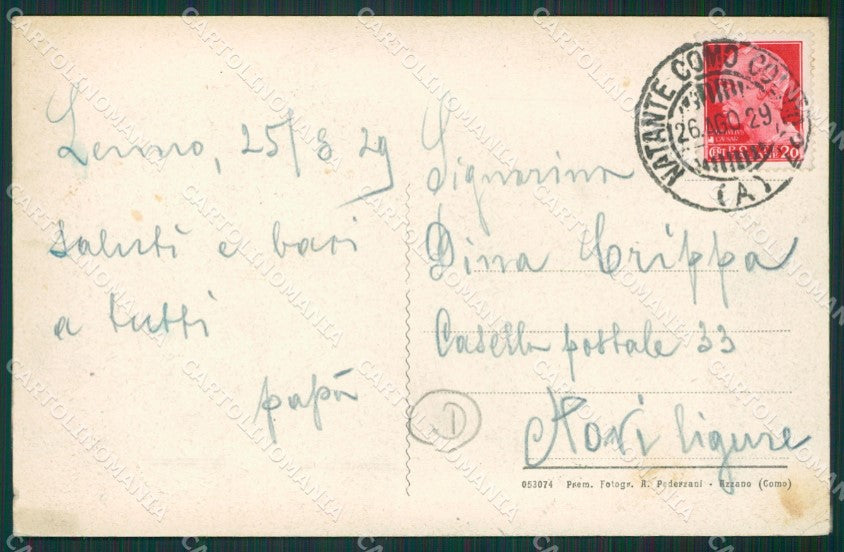 Lenno, 25/8 29
saluti e baci
a tutti
papà
NATANTE COMO
26.AGO.29
(A)
20
Signorina
Dina Crippa
Casella postale 33
Novi ligure
053074 Prem. Fotogr. R. Pederzani - Azzano (Como)
CARTOLINOMANIA